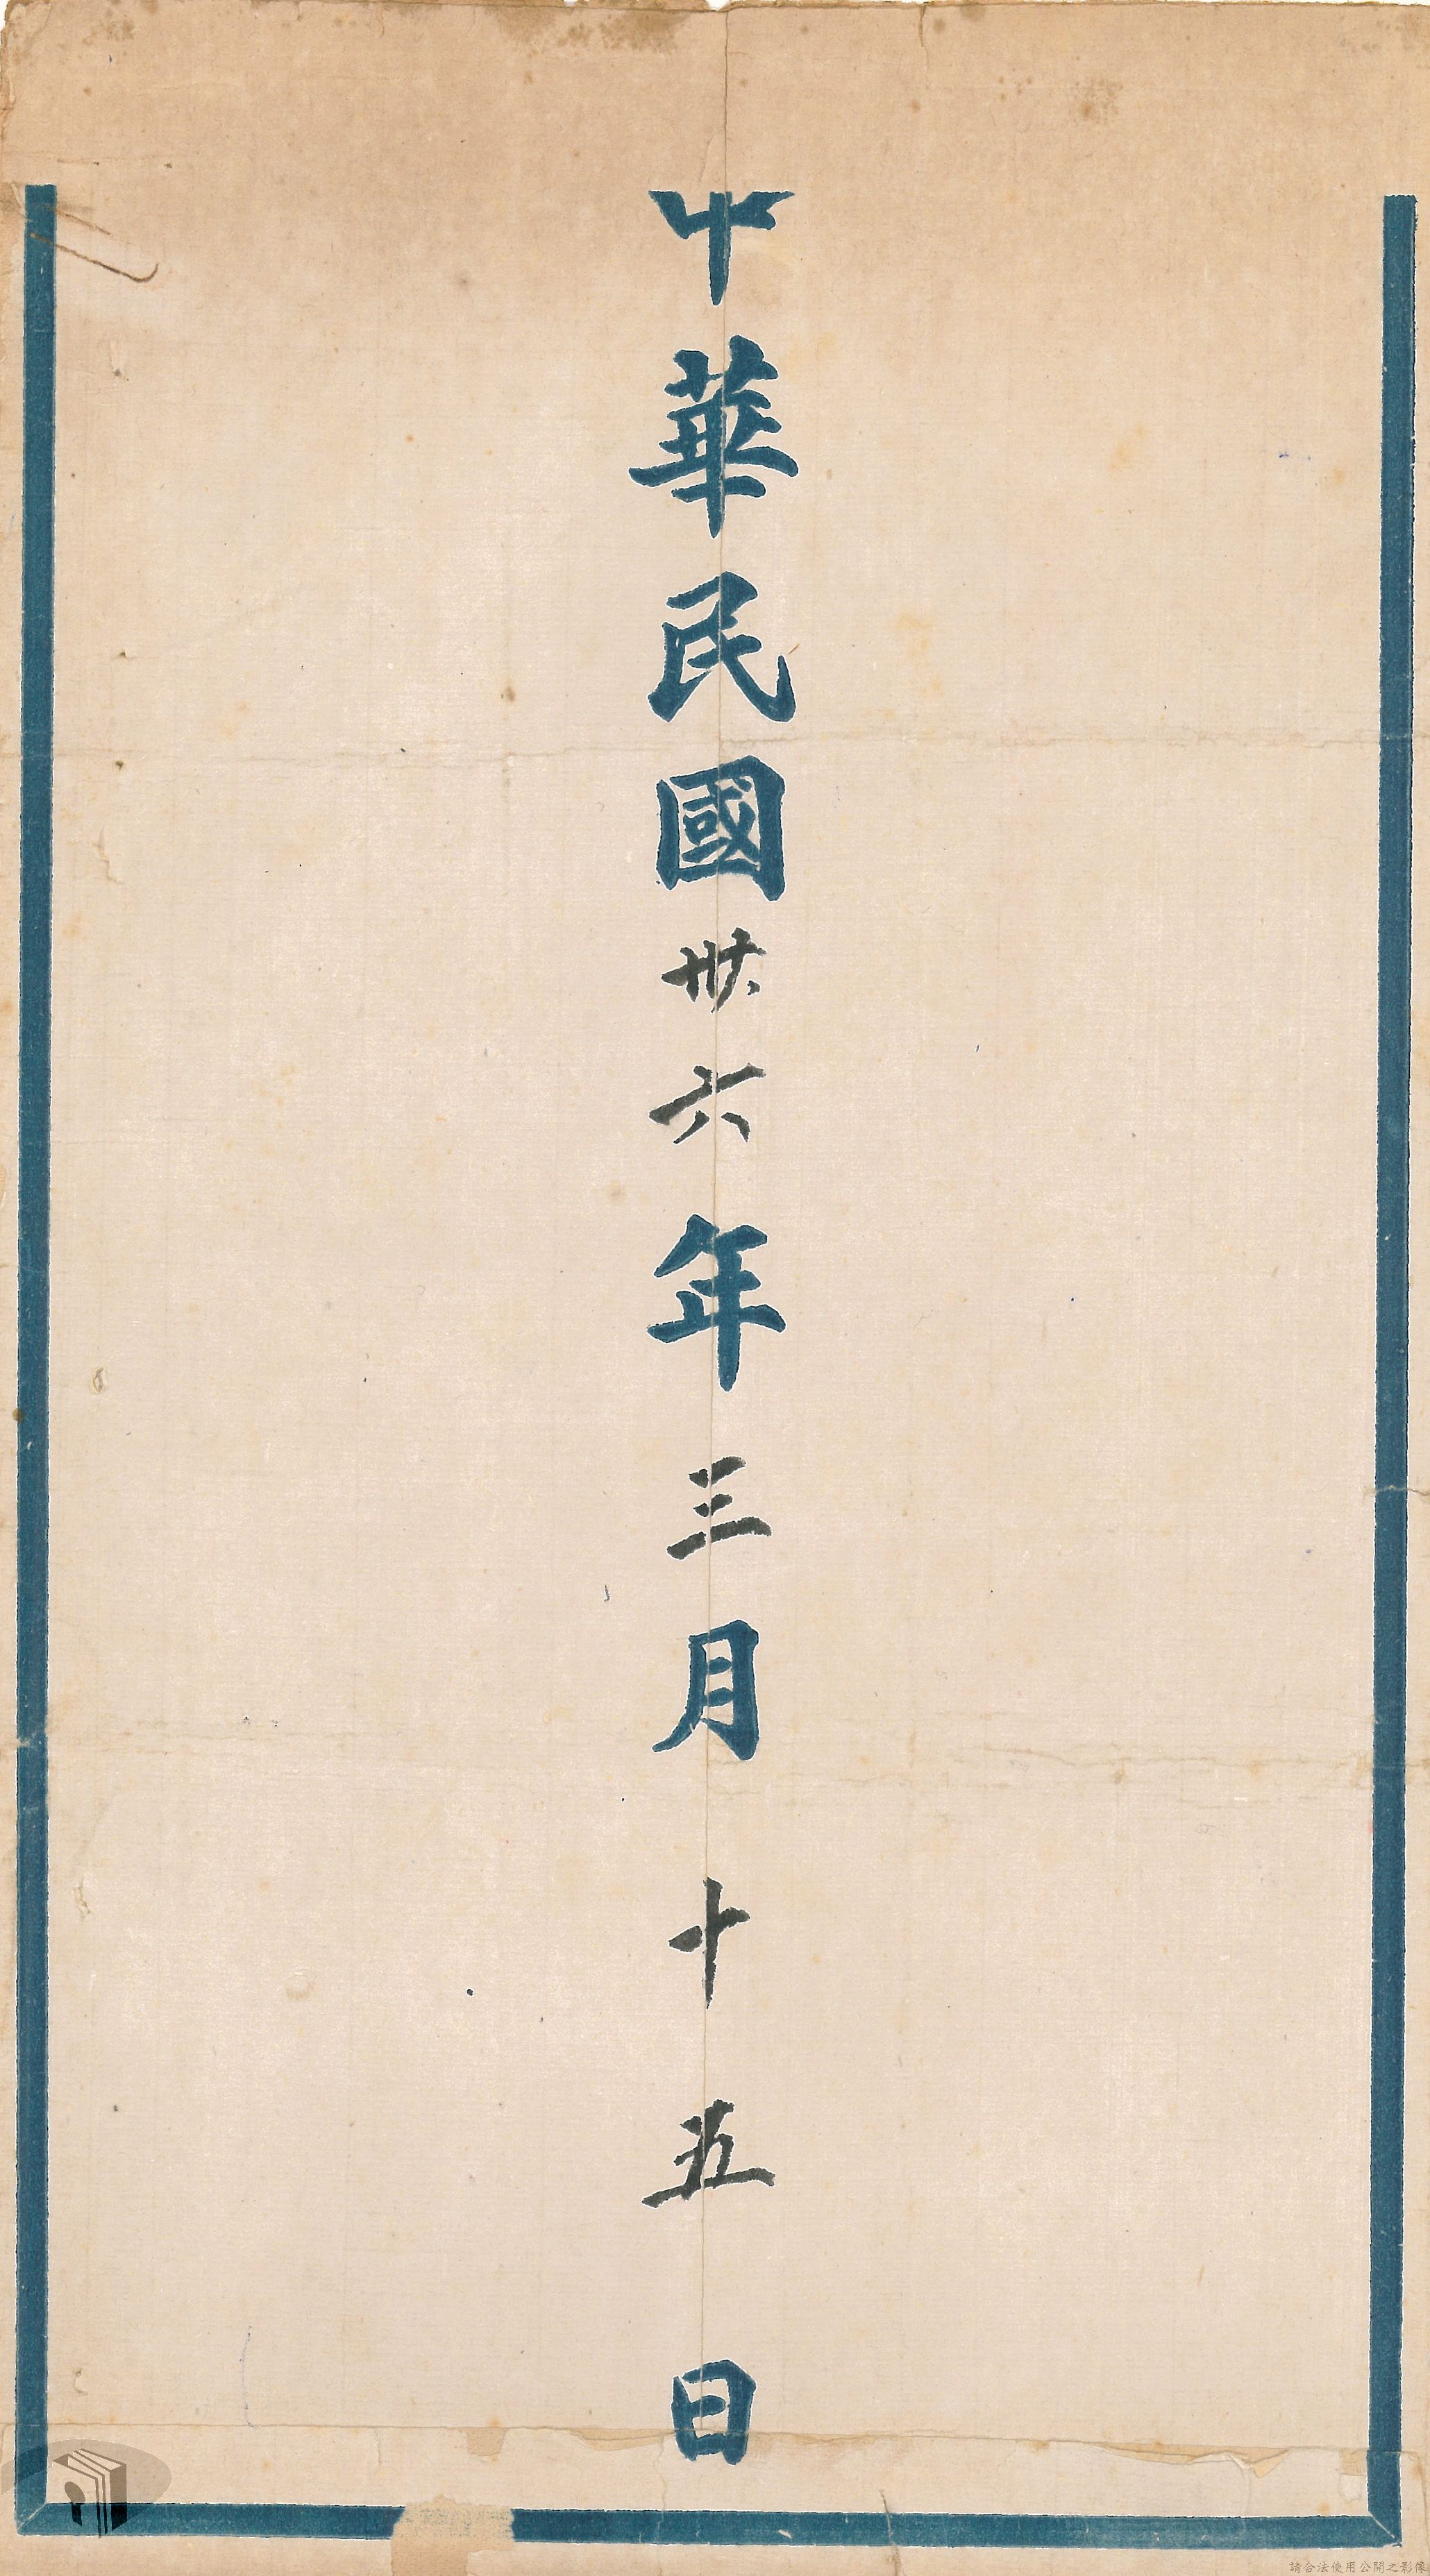 中華民國卅六年三月十五日
請合法使用公開之影像